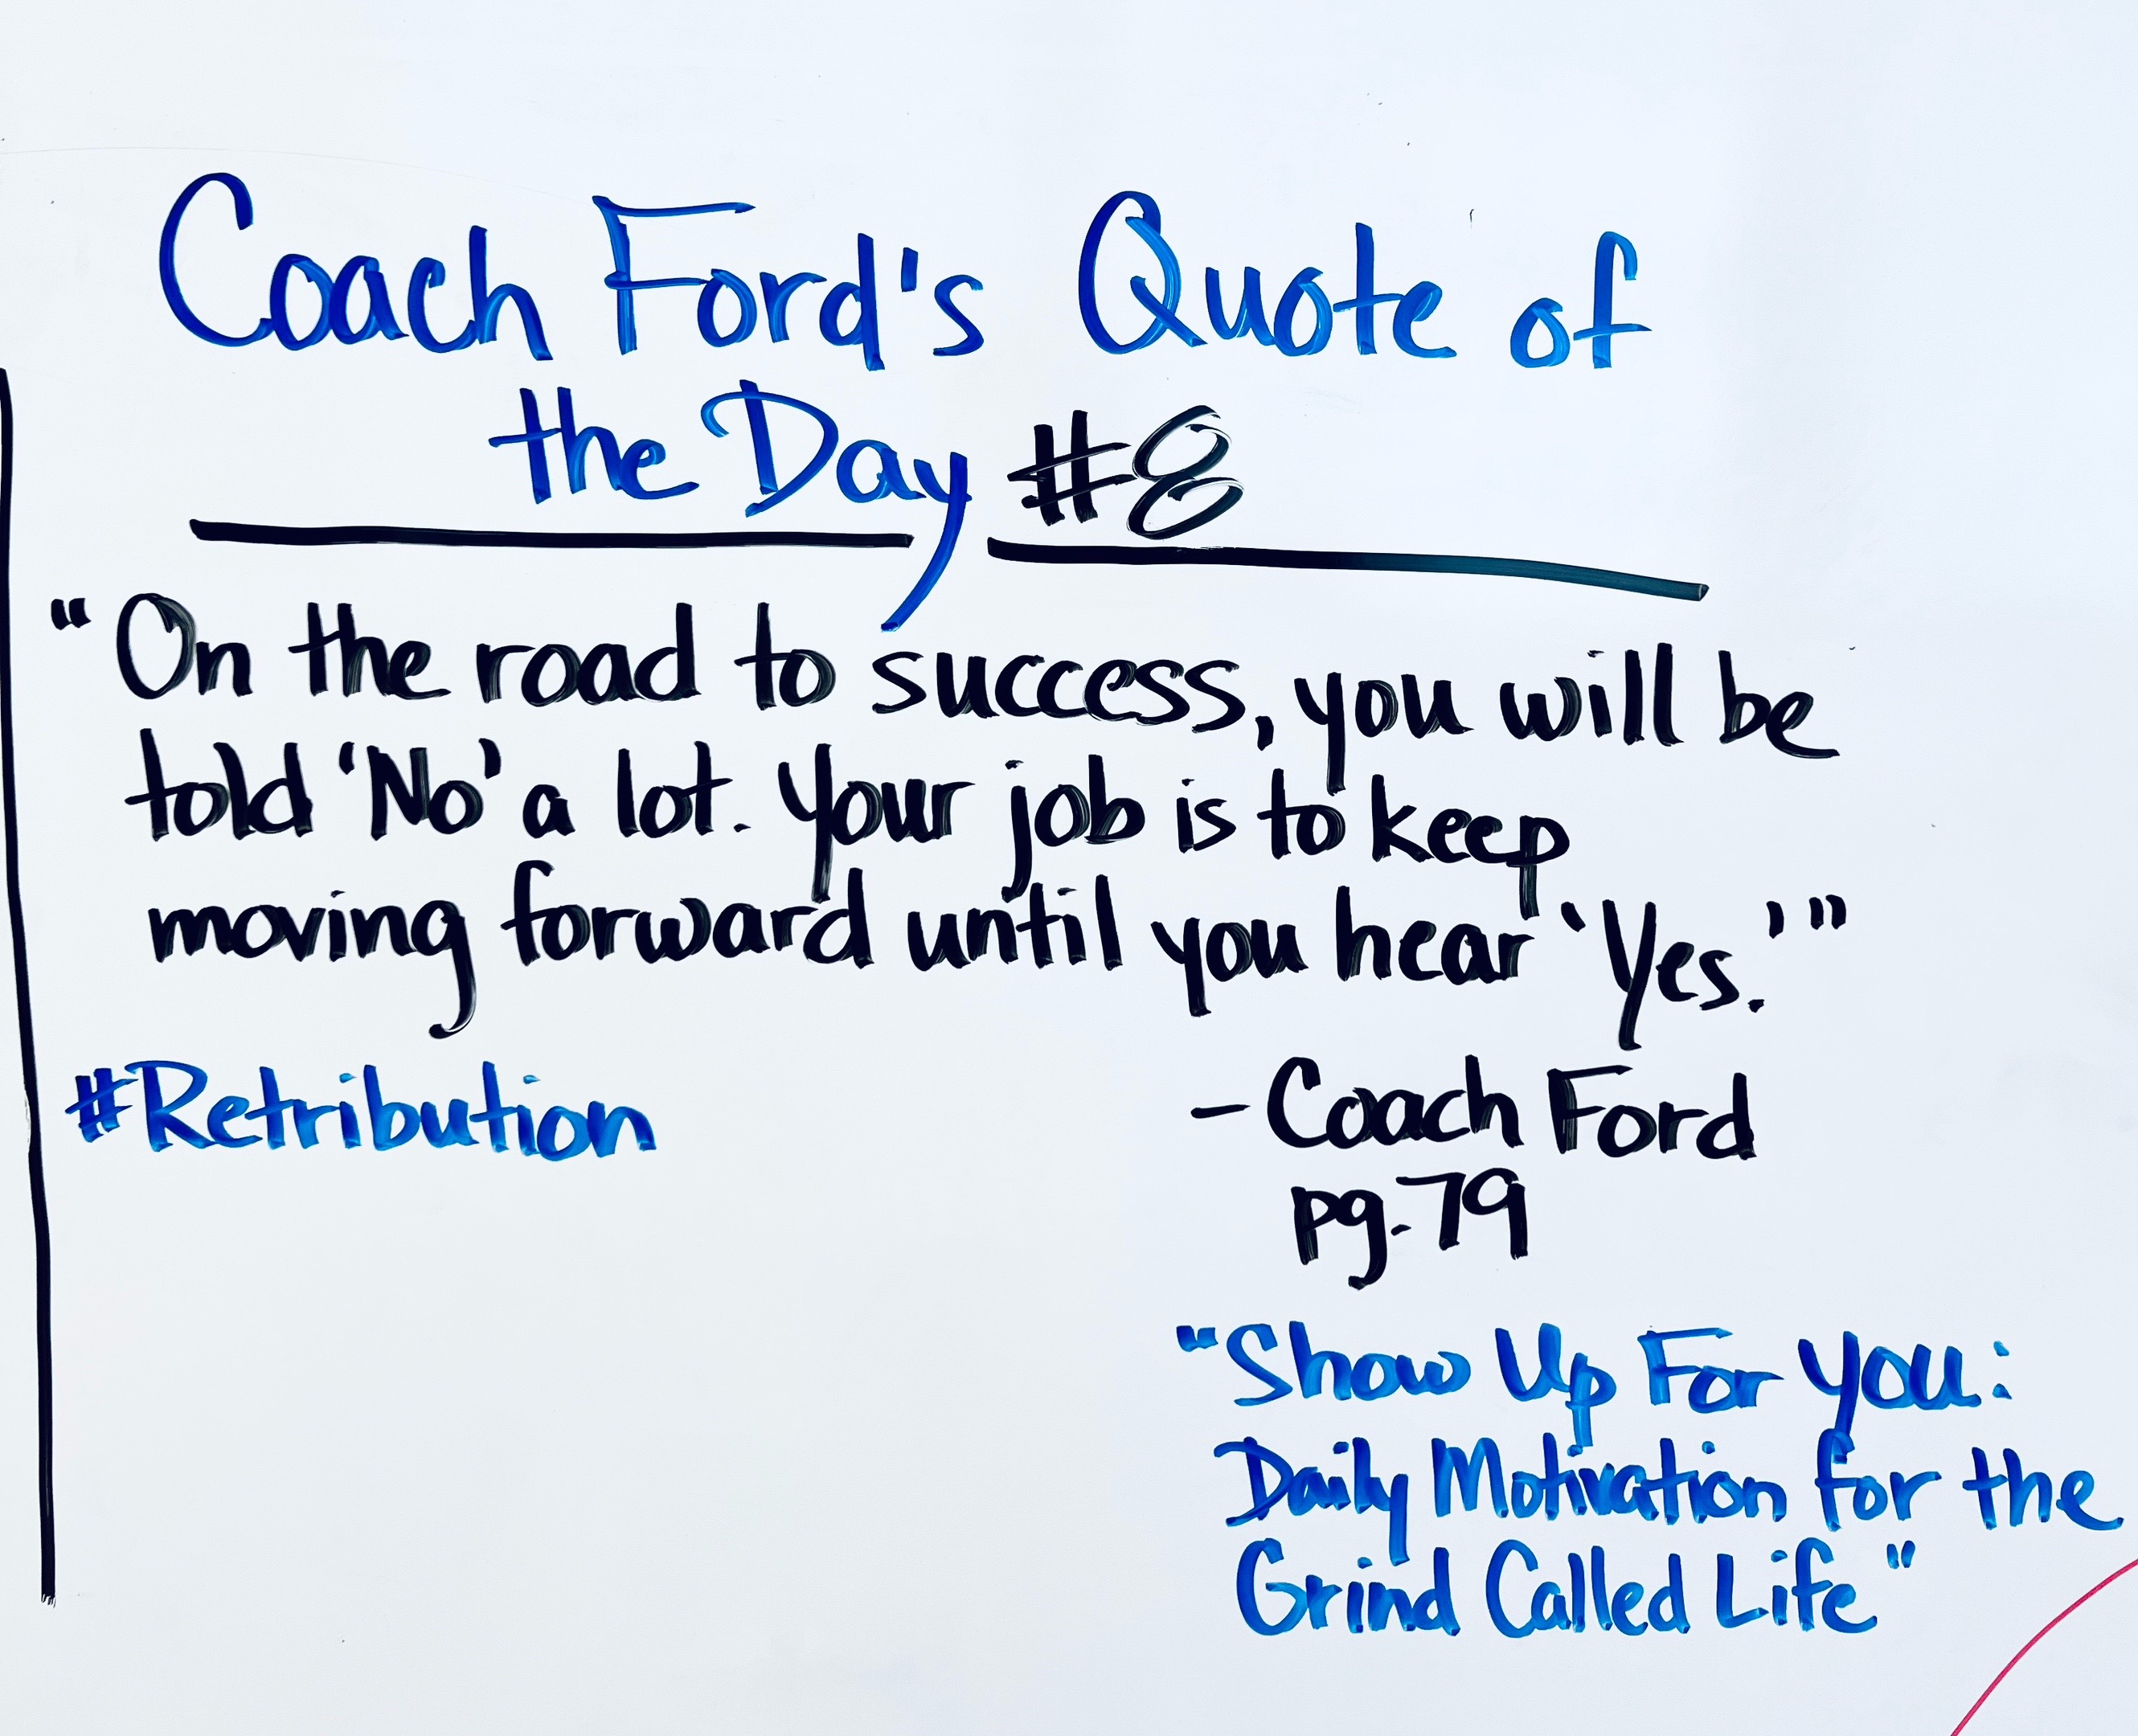 Coach Ford's Quote of
the Day #8
"On the road to success, you will be
told 'No' a lot. Your job is to keep
moving forward until you hear 'Yes.'"
#Retribution
- Coach Ford
pg. 79
"Show Up For You:
Daily Motivation for the
Grind Called Life"